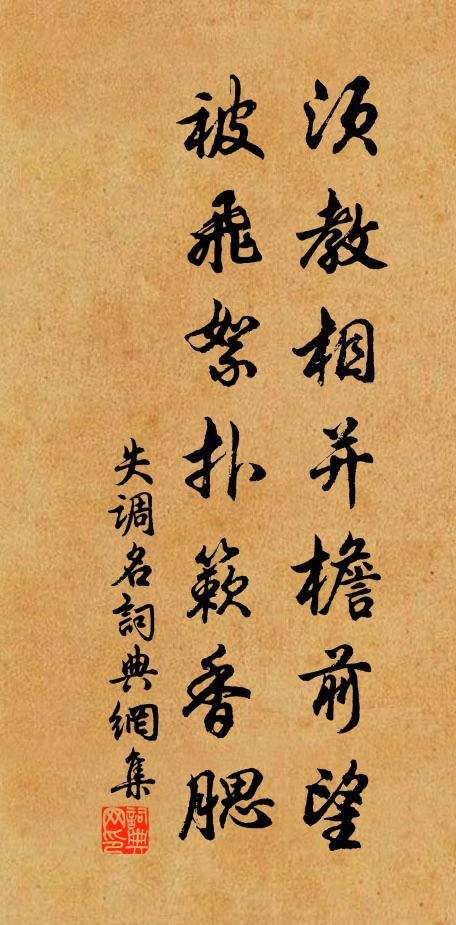 须教相并檐前望
被飞絮扑簌香腮
失调名詞典網集
詞典网印